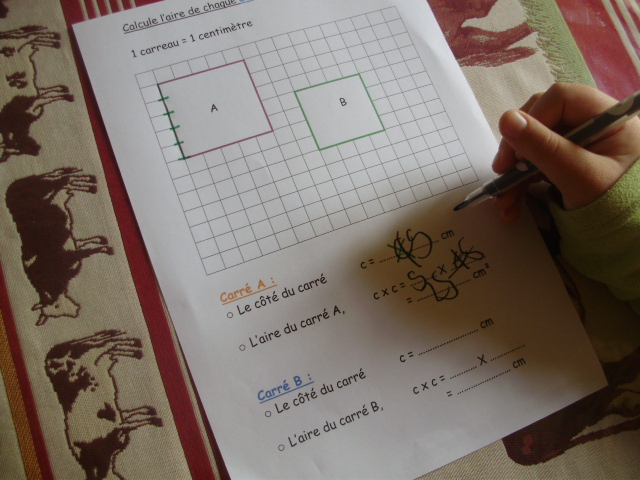 Calcule l'aire de chaque
1 carreau = 1 centimètre
A
B
Carré A :
○ Le côté du carré c = ........ 5 cm
○ L'aire du carré A, c x c = 5 x 5
= 25 cm²
Carré B :
○ Le côté du carré c = .................... cm
○ L'aire du carré B, c x c = ......... X ............
= .................. cm